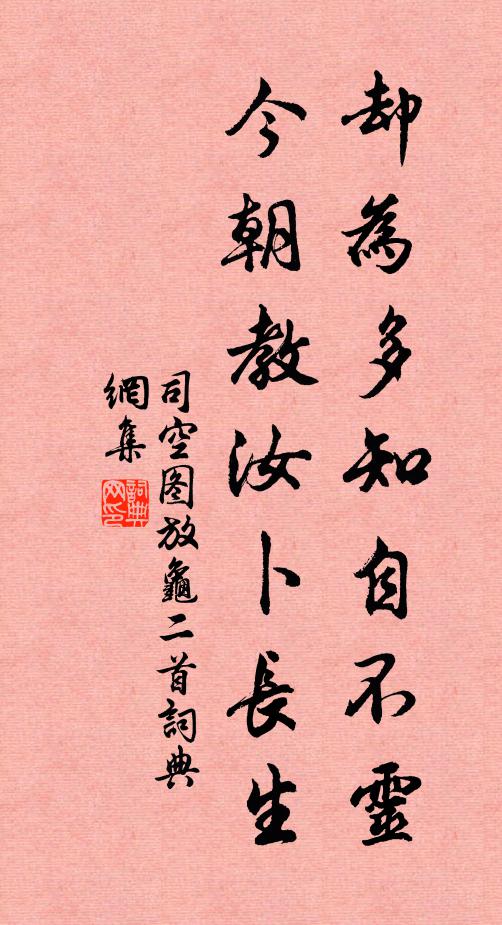 却為多知自不靈
今朝教汝卜長生
司空图放龜二首詞典
網集
詞典
网印